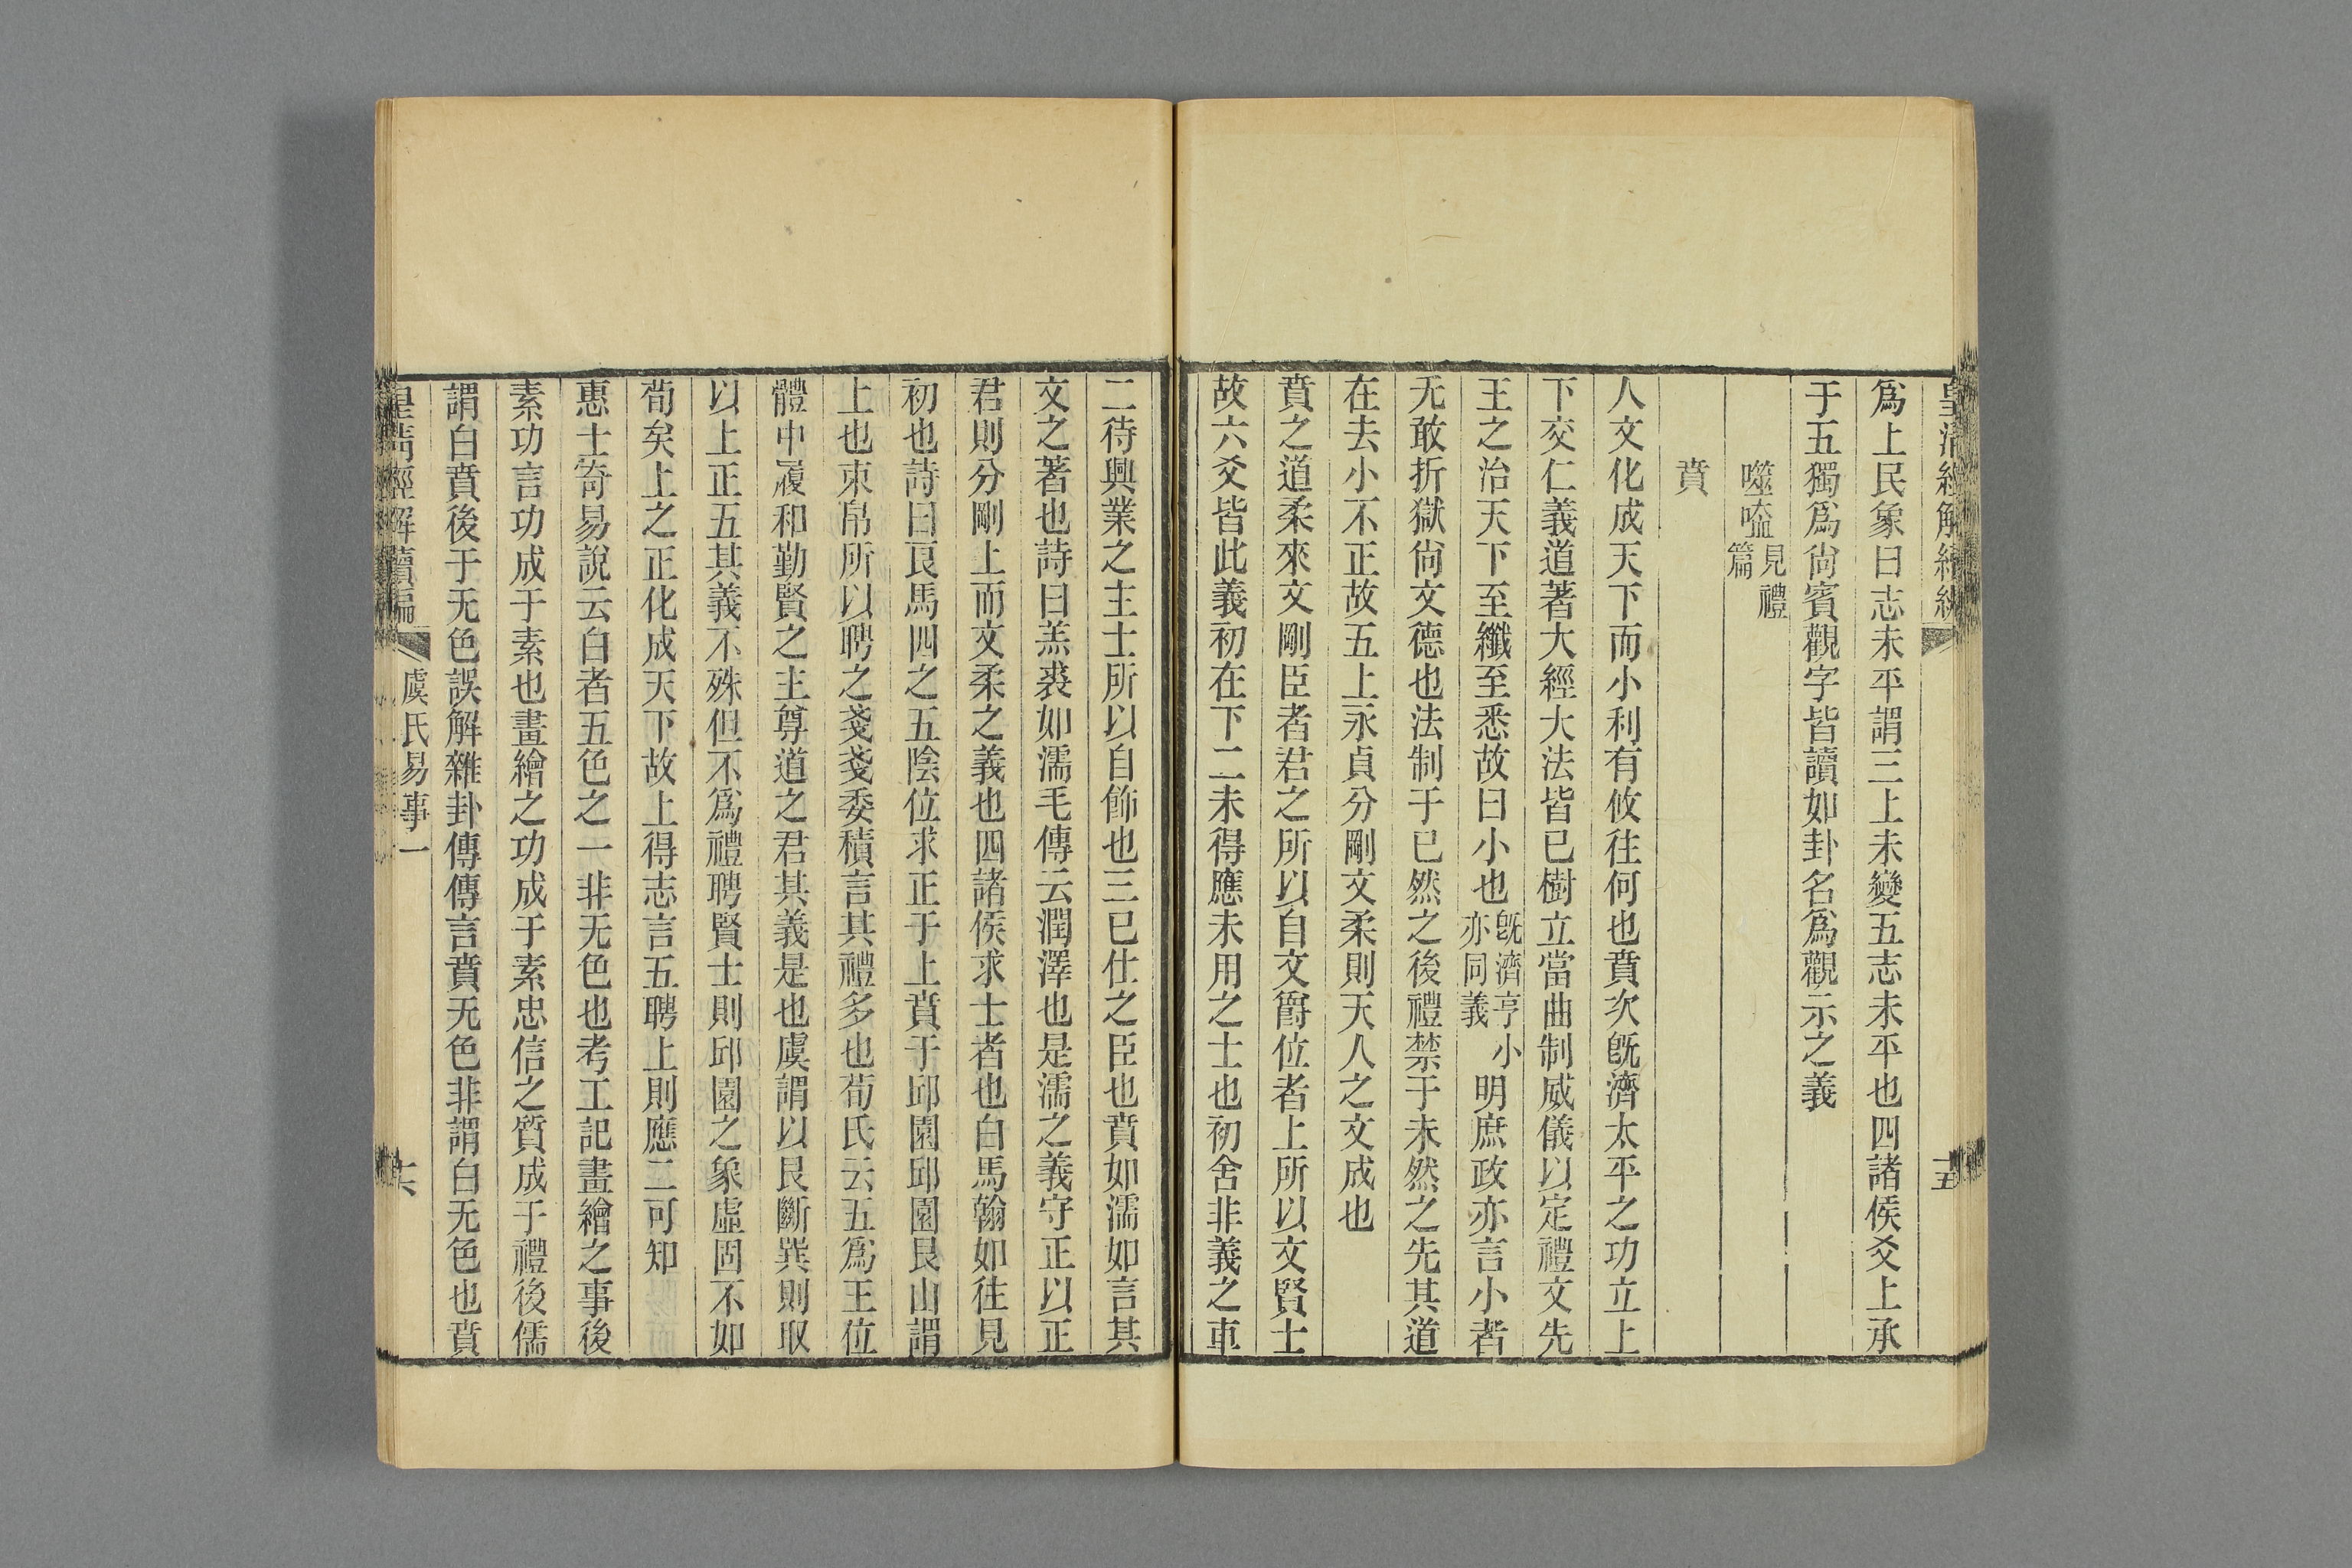 皇清經解續編
十五
爲上民象曰志未平謂三上未變五志未平也四諸侯爻上承
于五獨爲尙賓觀字皆讀如卦名爲觀示之義
噬嗑見禮篇
賁
人文化成天下而小利有攸往何也賁次旣濟太平之功立上
下交仁義道著大經大法皆已樹立當曲制威儀以定禮文先
王之治天下至纖至悉故曰小也旣濟亨小亦同義明庶政亦言小者
无敢折獄尙文德也法制于已然之後禮禁于未然之先其道
在去小不正故五上永貞分剛文柔則天人之文成也
賁之道柔來文剛臣者君之所以自文爵位者上所以文賢士
故六爻皆此義初在下二未得應未用之士也初舍非義之車
二待興業之主士所以自飾也三已仕之臣也賁如濡如言其
文之著也詩曰羔裘如濡毛傳云潤澤也是濡之義守正以正
君則分剛上而文柔之義也四諸侯求士者也白馬翰如往見
初也詩曰良馬四之五陰位求正于上賁于邱園邱園艮山謂
上也束帛所以聘之戔戔委積言其禮多也荀氏云五爲王位
體中履和勤賢之主尊道之君其義是也虞謂以艮斷巽則取
以上正五其義不殊但不爲禮聘賢士則邱園之象虛固不如
荀矣上之正化成天下故上得志言五聘上則應二可知
惠士奇易說云白者五色之一非无色也考工記畫繪之事後
素功言功成于素也畫繪之功成于素忠信之質成于禮後儒
謂白賁後于无色誤解雜卦傳傳言賁无色非謂白无色也賁
皇清經解續編
虞氏易事一
十六